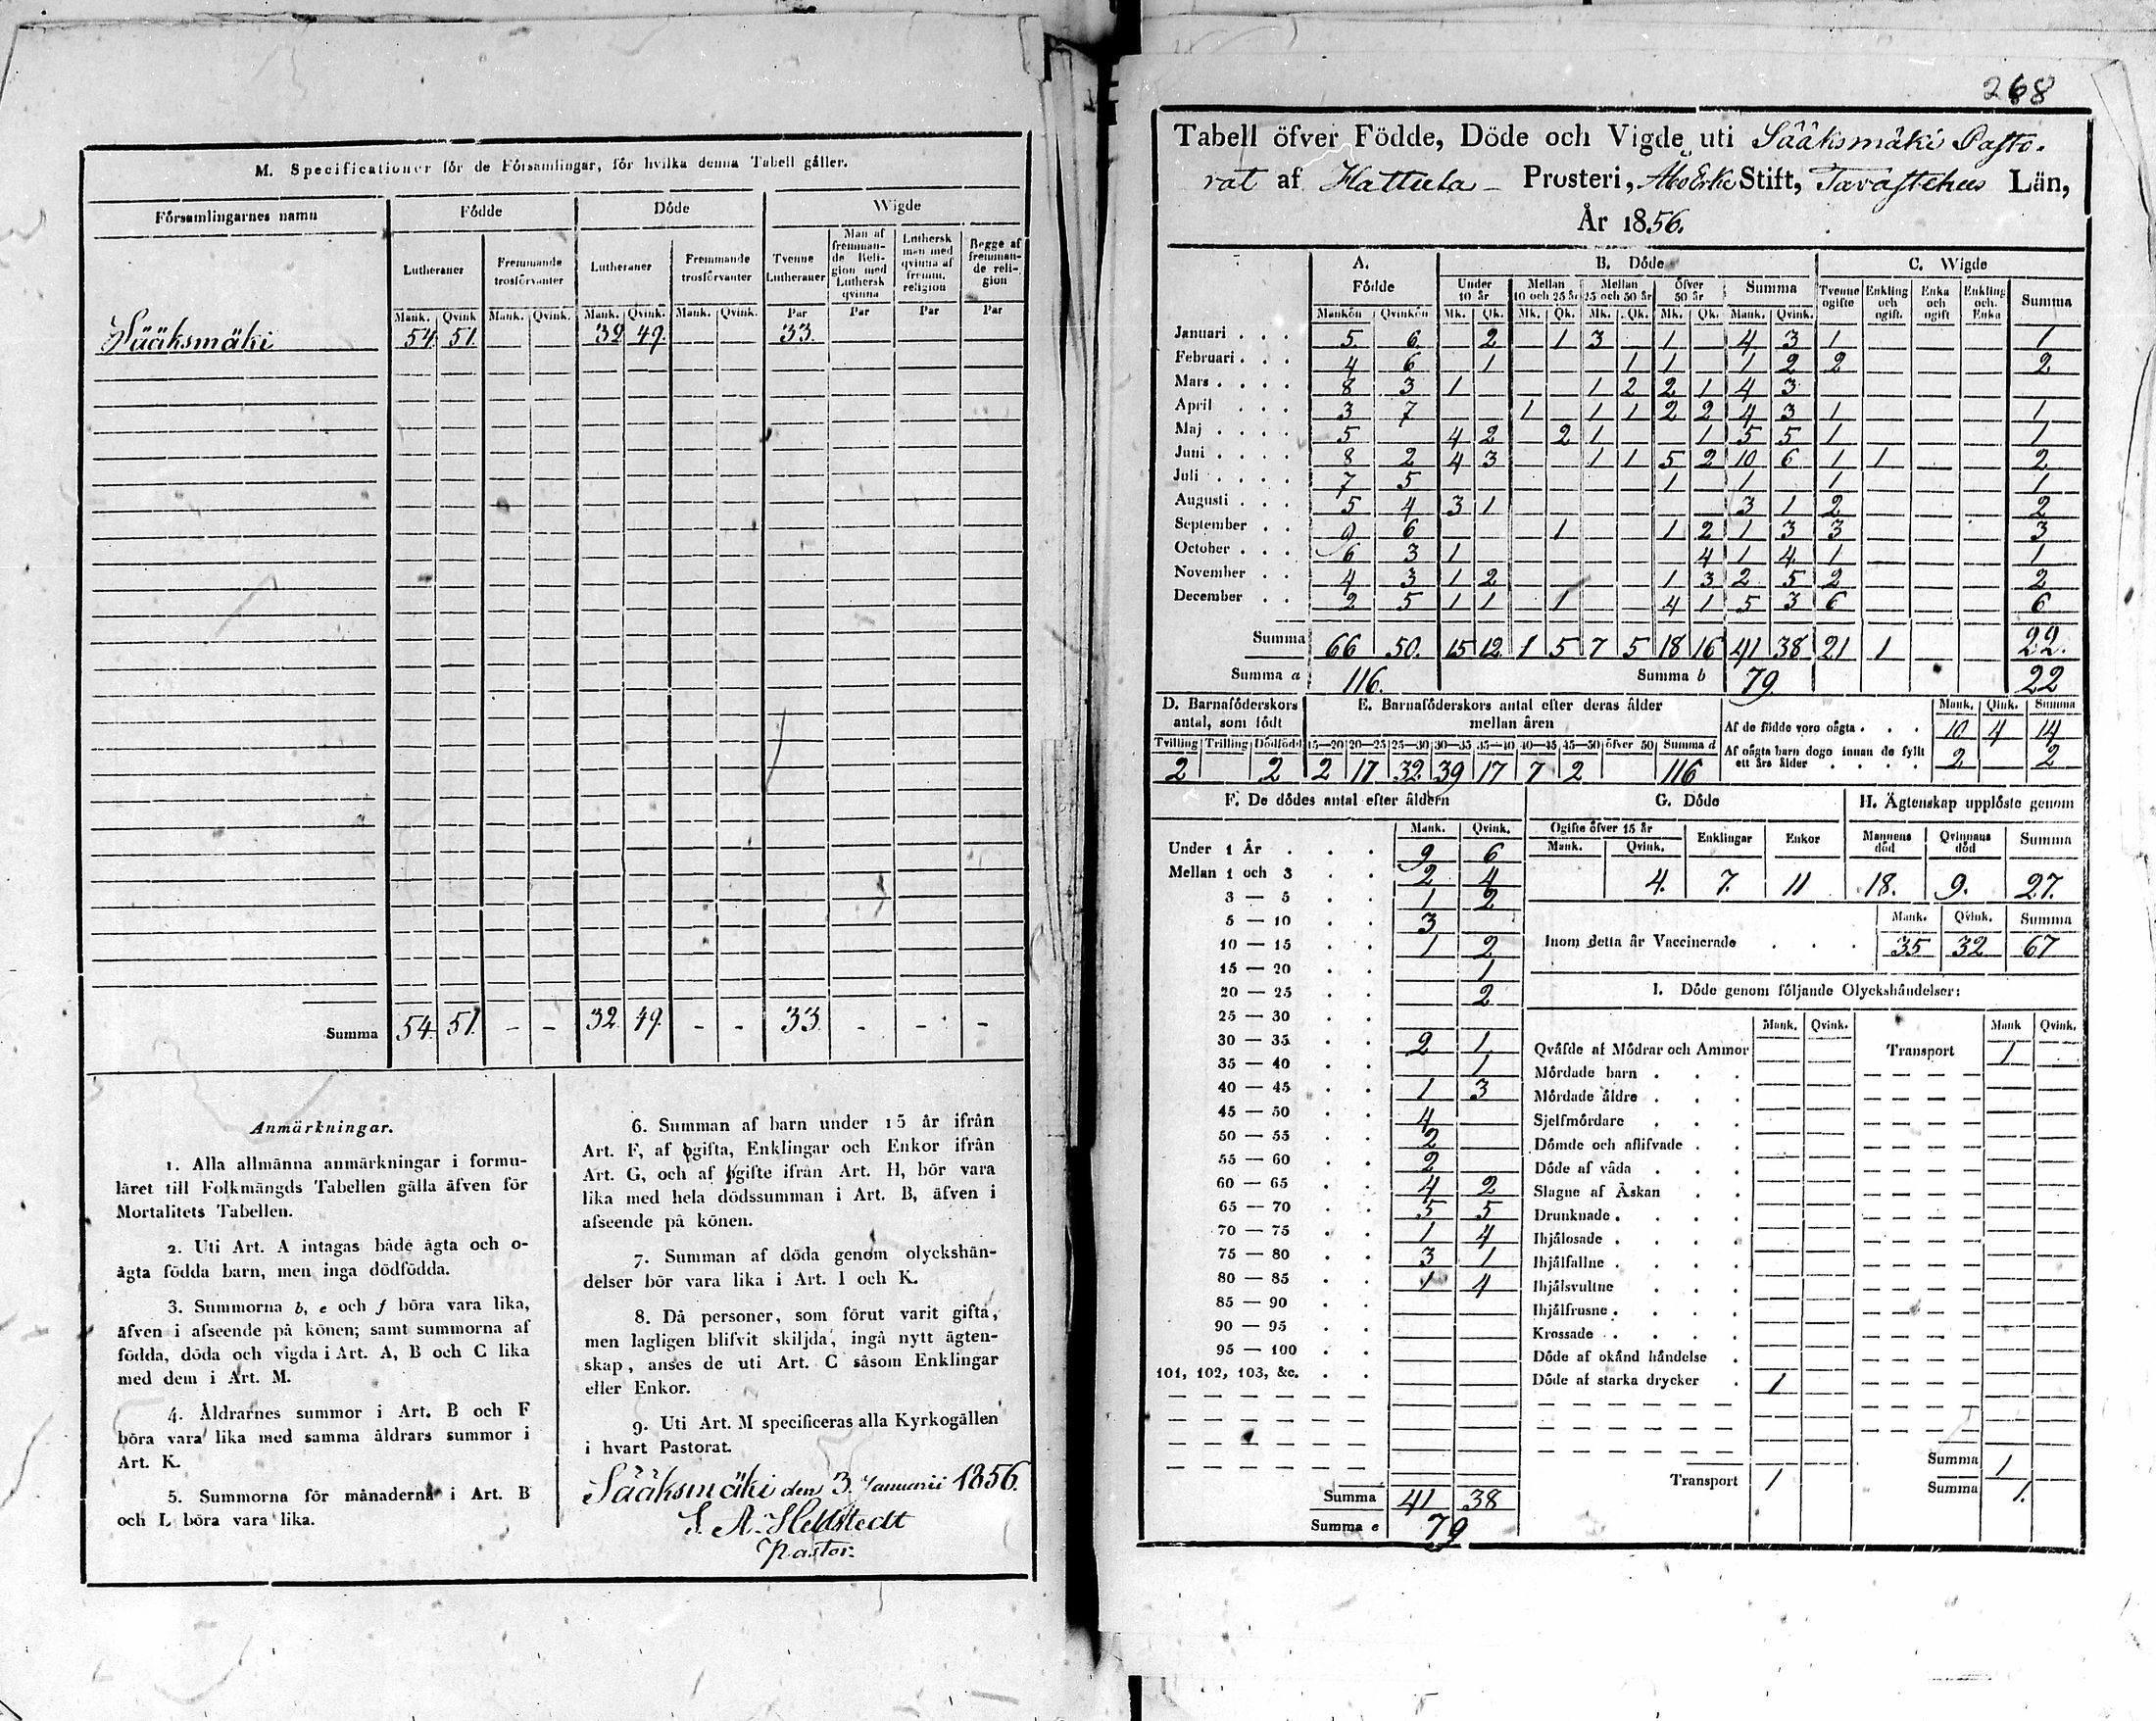 M. Specificationer för de Församlingar, för hvilka denna Tabell gäller.
Församlingarnes namn | Födde | Döde | Wigde
Lutheraner | Fremmande trosförvanter | Lutheraner | Fremmande trosförvanter | Tvenne Lutheraner | Man af fremmande Religion med Luthersk qvinna | Luthersk man med qvinna af fremm. religion | Begge af fremmande religion
Mank. | Qvink | Mank. | Qvink. | Mank. | Qvink. | Mank. | Qvink. | Par | Par | Par | Par
Sääksmäki 54. 51. 32 49. 33.
Summa 54. 51. - - 32. 49. - - 33. - - -
Anmärkningar.
1. Alla allmänna anmärkningar i formu-
läret till Folkmängds Tabellen gälla äfven för
Mortalitets Tabellen.
2. Uti Art. A intagas både ägta och o-
ägta födda barn, men inga dödfödda.
3. Summorna b, e och f böra vara lika,
äfven i afseende på könen; samt summorna af
födda, döda och vigda i Art. A, B och C lika
med dem i Art. M.
4. Åldrarnes summor i Art. B och F
böra vara lika med samma åldrars summor i
Art. K.
5. Summorna för månaderna i Art. B
och L böra vara lika.
6. Summan af barn under 15 år ifrån
Art. F, af ogifta, Enklingar och Enkor ifrån
Art. G, och af gifte ifrån Art. H, bör vara
lika med hela dödssumman i Art. B, äfven i
afseende på könen.
7. Summan af döda genom olyckshän-
delser bör vara lika i Art. I och K.
8. Då personer, som förut varit gifta,
men lagligen blifvit skiljda, ingå nytt ägten-
skap, anses de uti Art. C såsom Enklingar
eller Enkor.
9. Uti Art. M specificeras alla Kyrkogällen
i hvart Pastorat.
Sääksmäki den 3. Januarii 1856.
Hellstedt
Pastor.
268
Tabell öfver Födde, Döde och Vigde uti Sääksmäki Pasto-
rat af Hattula Prosteri, Åbo Erke Stift, Tavastehus Län,
År 1856.
A. Födde | B. Döde | C. Wigde
Under 10 år | Mellan 10 och 25 år | Mellan 25 och 50 år | Öfver 50 år | Summa | Tvenne ogifte | Enkling och ogift. | Enka och ogift | Enkling och Enka | Summa
Mankön | Qvinkön | Mk. | Qk. | Mk. | Qk. | Mk. | Qk. | Mk. | Qk. | Mank. | Qvink.
Januari . . . 5 6. 2 1 3 1 4 3 1 1
Februari . . . 4 6 1 1 1 1 2 2 2
Mars . . . . 8 3 1 1 2 2 1 4 3
April . . . 3 7 1 1 1 2 2 4 3 1 1
Maj . . . . 5 4 2 2 1 1 5 5 1 1
Juni . . . . 8 2 4 3 1 1 5 2 10 6 1 1 2
Juli . . . . 7 5 1 1 1 1
Augusti . . . 5 4 3 1 3 1 2 2
September . . 9 6 1 1 2 1 3 3 3
October . . . 6 3 1 4 1 4 1 1
November . . 4 3 1 2 1 3 2 5 2 2
December . . 2 5 1 1 1 4 1 5 3 6 6
Summa 66 50. 15 12 1 5 7 5 18 16 41 38 21 1 22.
Summa a 116. Summa b 79 22
D. Barnaföderskors antal, som födt
Tvilling | Trilling | Dödfödd
2 2
E. Barnaföderskors antal efter deras ålder mellan åren
15—20 | 20—25 | 25—30 | 30—35 | 35—40 | 40—45 | 45—50 | öfver 50 | Summa d
2 17 32 39 17 7 2 116
Mank. | Qink. | Summa
Af de födde voro oägta . . . 10 4 14
Af oägta barn dogo innan de fyllt ett års ålder . . . . 2 2
F. De dödes antal efter åldern
Mank. | Qvink.
Under 1 År . . . 9 6
Mellan 1 och 3 . . 2 4
3 — 5 . . 1 2
5 — 10 . . 3
10 — 15 . . 1 2
15 — 20 . . 1
20 — 25 . . 2
25 — 30 . .
30 — 35 . . 2 1
35 — 40 . . 1
40 — 45 . . 1 3
45 — 50 . . 4
50 — 55 . . 2
55 — 60 . . 2
60 — 65 . . 4 2
65 — 70 . . 5 5
70 — 75 . . 1 4
75 — 80 . . 3 1
80 — 85 . . 1 4
85 — 90 . .
90 — 95 . .
95 — 100 . .
101, 102, 103, &c. . .
Summa 41 38
Summa e 79
G. Döde
Ogifte öfver 15 år | Enklingar | Enkor
Mank. | Qvink.
4. 7. 11
H. Ägtenskap upplöste genom
Mannens död | Qvinnans död | Summa
18. 9. 27.
Mank. | Qvink. | Summa
Inom detta år Vaccinerade . . . 35 32 67
I. Döde genom följande Olyckshändelser:
Mank. | Qvink. | Mank | Qvink.
Qväfde af Mödrar och Ammor
Mördade barn . . .
Mördade äldre . . .
Sjelfmördare . .
Dömde och aflifvade . .
Döde af våda . . .
Slagne af Åskan . .
Drunknade . . . .
Ihjälosade . . . .
Ihjälfallne . . . .
Ihjälsvultne . . .
Ihjälfrusne . . . .
Krossade . . . .
Döde af okänd händelse .
Döde af starka drycker . 1
Transport 1
Transport 1
Summa 1
Summa 1.